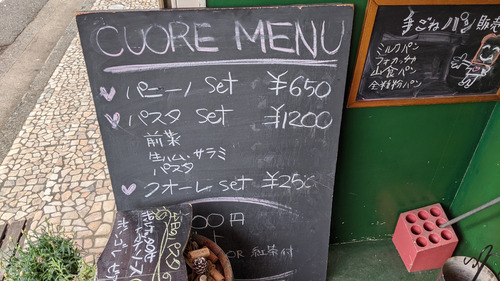 CUORE MENU
パニーノ set ¥650
パスタ set ¥1200
前菜
生ハム・サラミ
パスタ
クオーレ set ¥250
00円
OR 紅茶付
手ごねパン 販売
ミルクパン
フォカッチャ
山食パン
全粒粉パン
パスタ